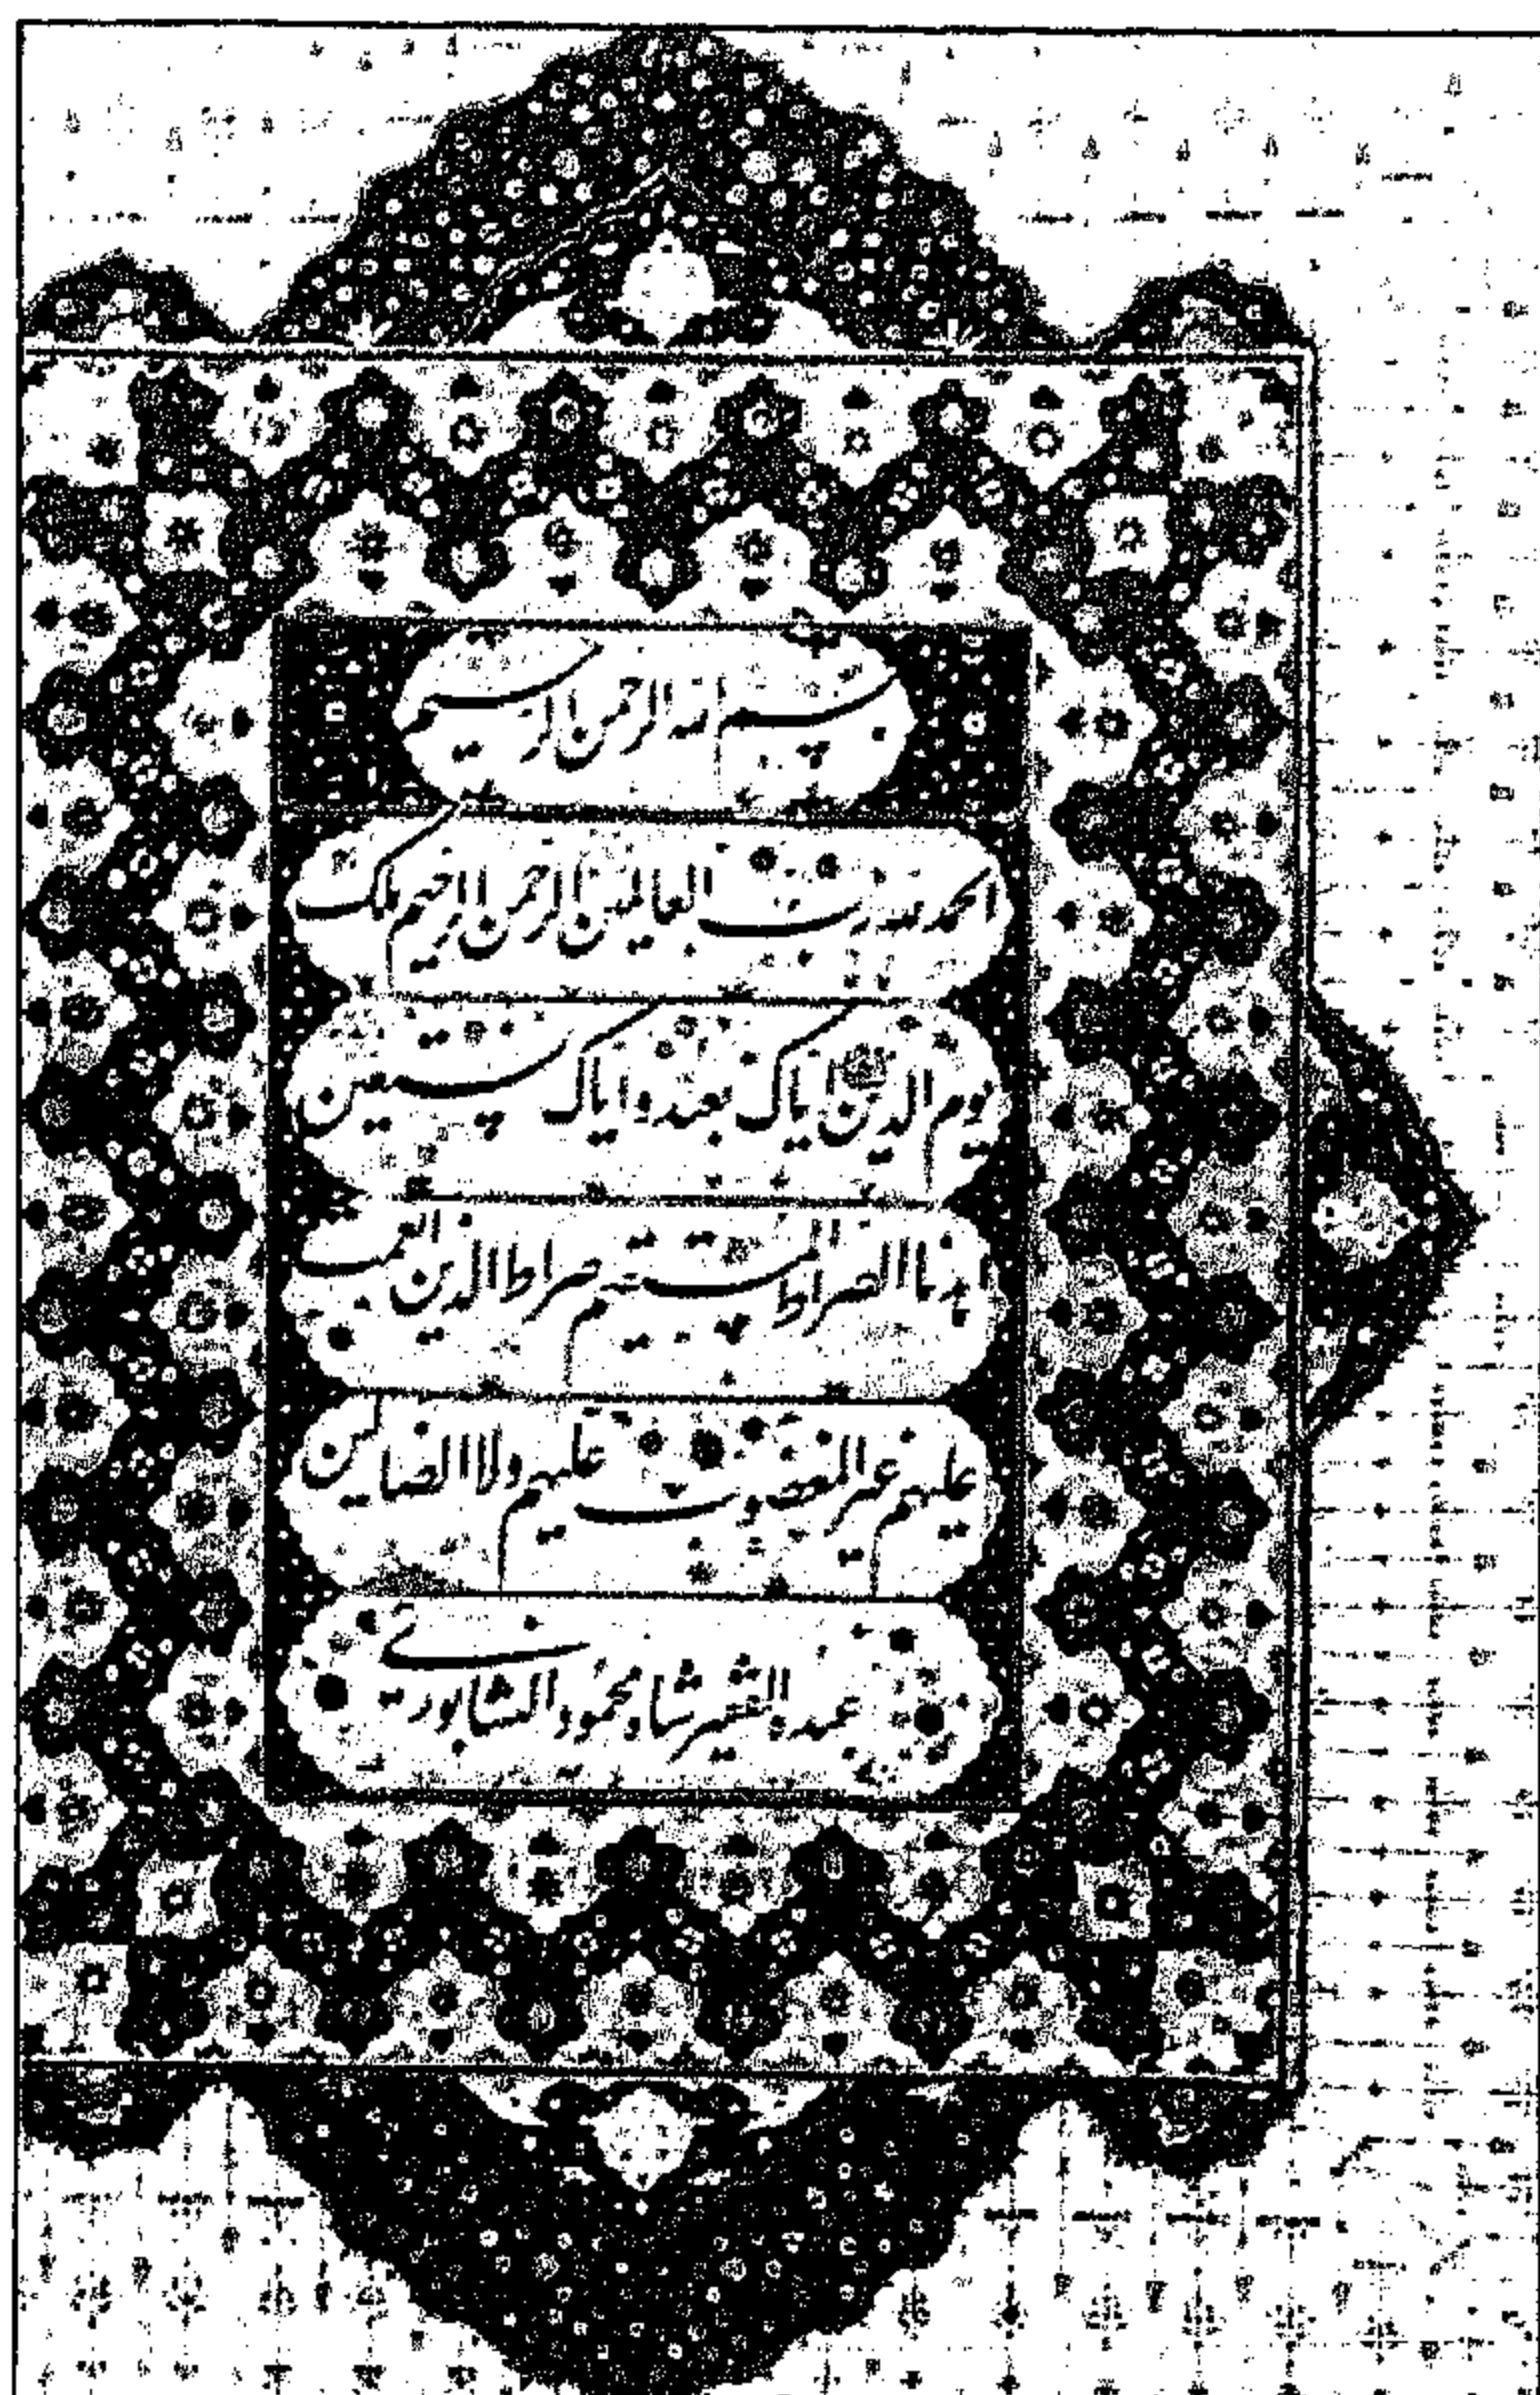 بسم الله الرحمن الرحیم
الحمد لله رب العالمین الرحمن الرحیم ملک
یوم الدین ایاک نعبد و ایاک نستعین
اهدنا الصراط المستقیم صراط الذین انعمت
علیهم غیر المغضوب علیهم ولا الضالین
عبده الفقیر شاه محمود النیشابوری